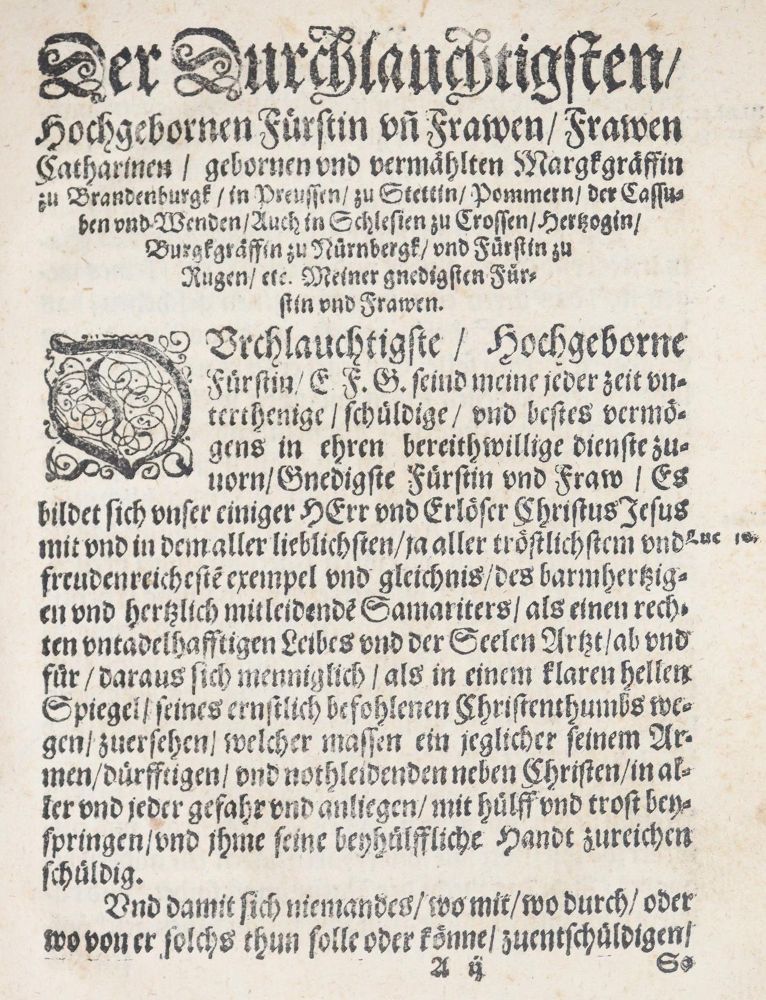 Der Durchlauchtigsten/
Hochgebornen Fürstin vñ Frawen/ Frawen
Catharinen / gebornen vnd vermählten Margkgräffin
zu Brandenburgk / in Preussen/ zu Stettin/ Pommern/ der Cassu-
ben vnd Wenden/ Auch in Schlesien zu Crossen/ Hertzogin/
Burgkgräffin zu Nürnbergk/ vnd Fürstin zu
Rugen/ etc. Meiner gnedigsten Für-
stin vnd Frawen.
DVrchlauchtigste / Hochgeborne
Fürstin/ E. F. G. seind meine jeder zeit vn-
terthenige / schüldige / vnd bestes vermö-
gens in ehren bereithwillige dienste zu-
uorn/ Gnedigste Fürstin vnd Fraw / Es
bildet sich vnser einiger HErr vnd Erlöser Christus Jesus
mit vnd in dem aller lieblichsten/ ja aller tröstlichstem vnd Luc 10.
freudenreichestē exempel vnd gleichnis/ des barmhertzig-
en vnd hertzlich mitleidendē Samariters/ als einen rech-
ten vntadelhafftigen Leibes vnd der Seelen Artzt/ ab vnd
für / daraus sich menniglich / als in einem klaren hellen
Spiegel/ seines ernstlich befohlenen Christenthumbs we-
gen/ zuersehen/ welcher massen ein jeglicher seinem Ar-
men/ dürfftigen/ vnd nothleidenden neben Christen/ in al-
ler vnd jeder gefahr vnd anliegen/ mit hülff vnd trost bey-
springen/ vnd jhme seine beyhülffliche Handt zureichen
schüldig.
Vnd damit sich niemandes/ wo mit/ wo durch/ oder
wo von er solchs thun solle oder könne/ zuentschüldigen/
A ij So